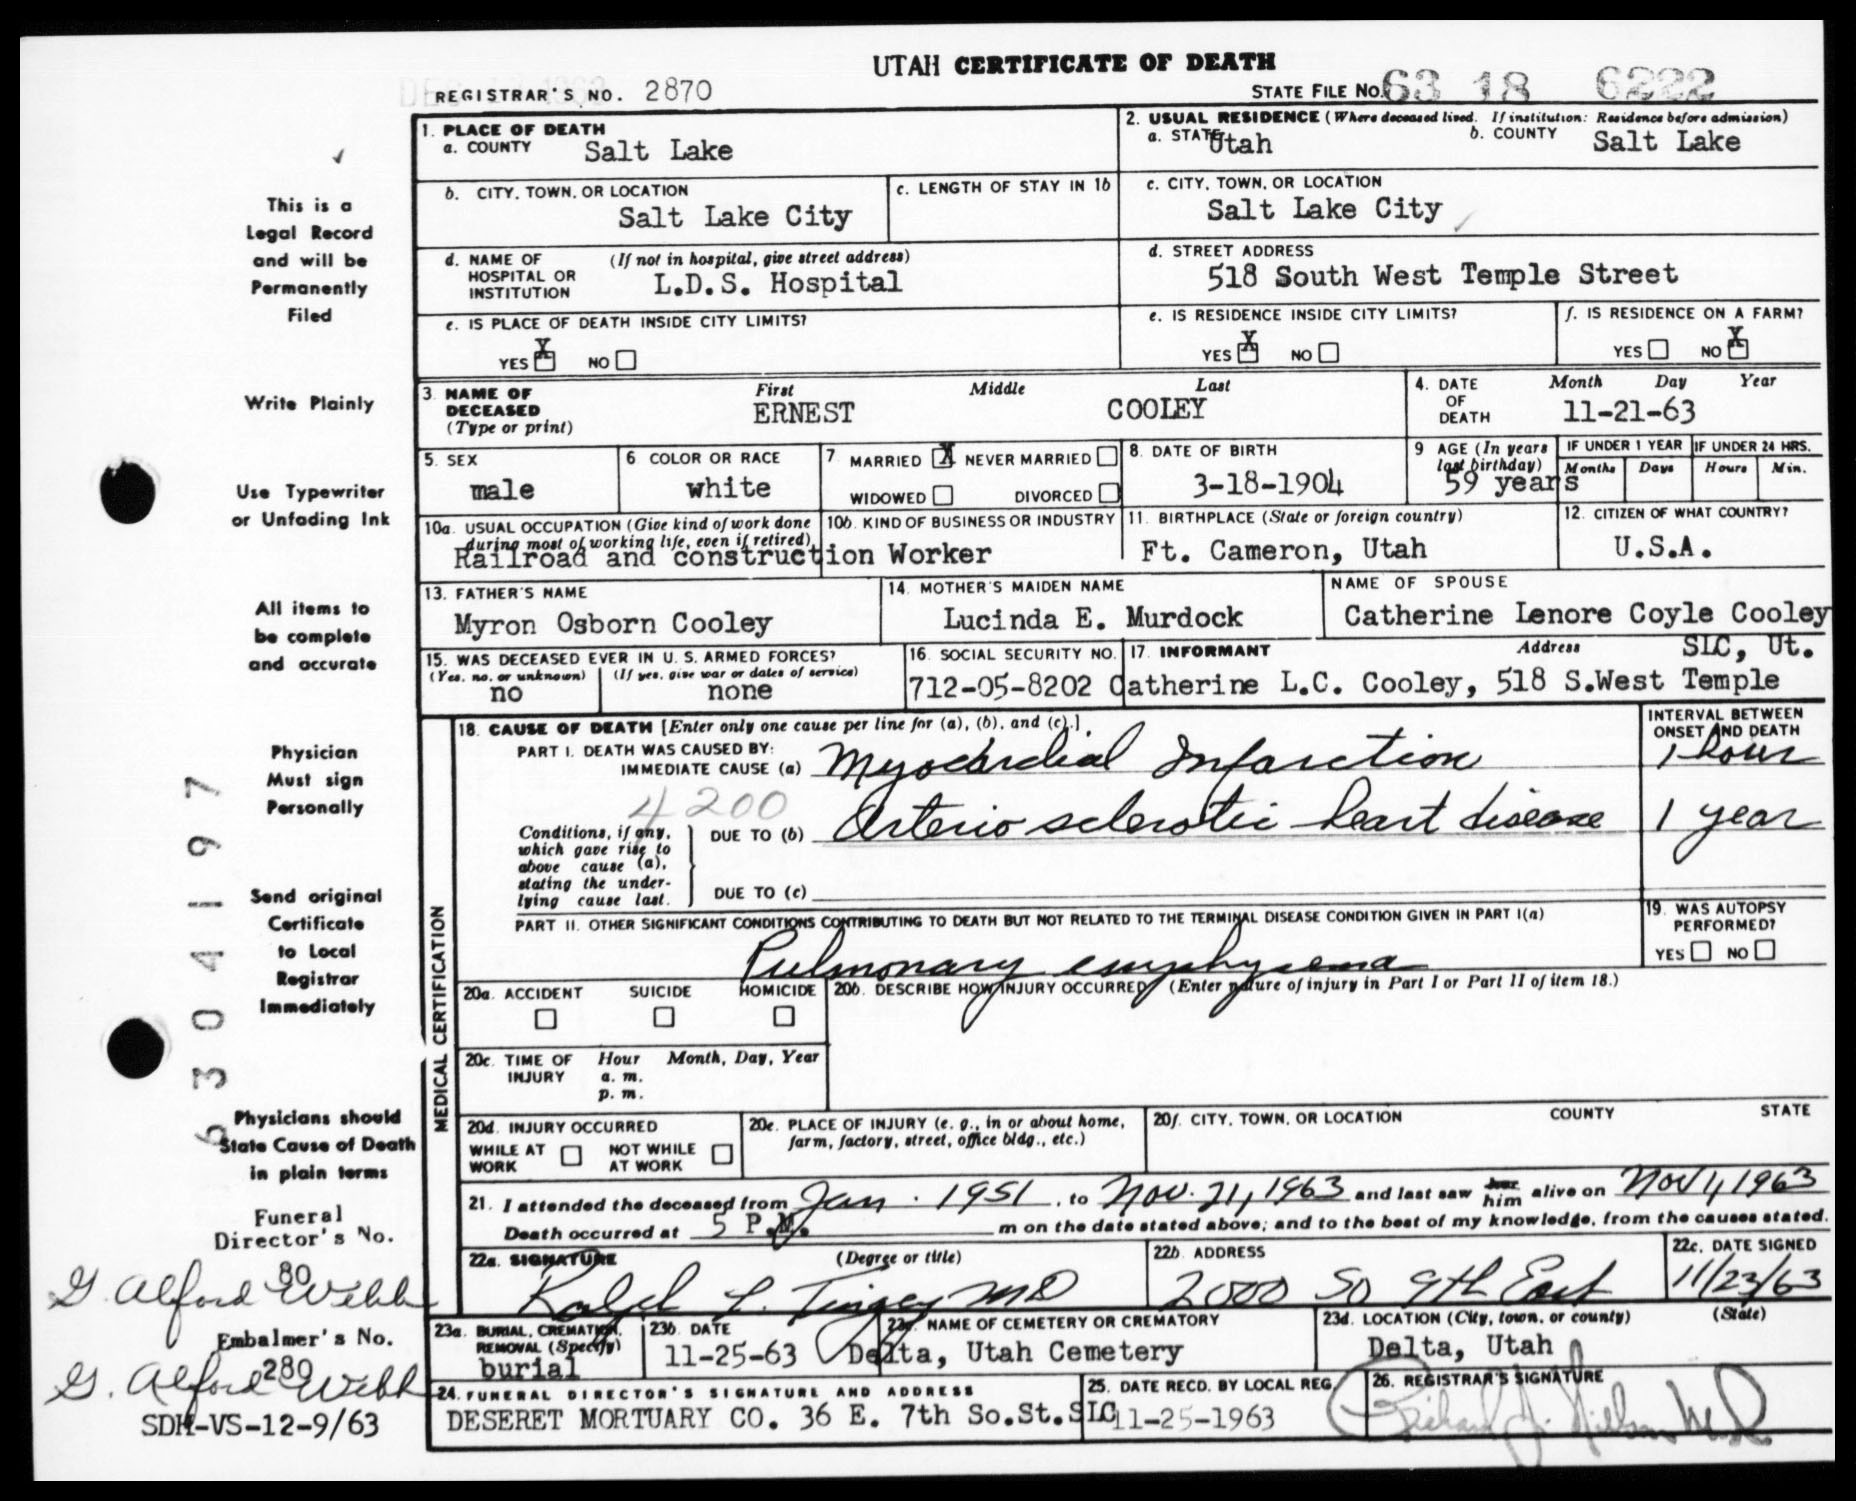 UTAH CERTIFICATE OF DEATH
REGISTRAR'S NO. 2870
STATE FILE NO. 63 18 6222
1. PLACE OF DEATH
a. COUNTY Salt Lake
2. USUAL RESIDENCE (Where deceased lived. If institution: Residence before admission)
a. STATE Utah b. COUNTY Salt Lake
b. CITY, TOWN, OR LOCATION
Salt Lake City
c. LENGTH OF STAY IN 1b
c. CITY, TOWN, OR LOCATION
Salt Lake City
d. NAME OF HOSPITAL OR INSTITUTION (If not in hospital, give street address)
L.D.S. Hospital
d. STREET ADDRESS
518 South West Temple Street
e. IS PLACE OF DEATH INSIDE CITY LIMITS?
YES X NO
e. IS RESIDENCE INSIDE CITY LIMITS?
YES X NO
f. IS RESIDENCE ON A FARM?
YES NO X
3. NAME OF DECEASED (Type or print)
First Middle Last
ERNEST COOLEY
4. DATE OF DEATH Month Day Year
11-21-63
5. SEX
male
6 COLOR OR RACE
white
7 MARRIED X NEVER MARRIED
WIDOWED DIVORCED
8. DATE OF BIRTH
3-18-1904
9 AGE (In years last birthday)
59 years
IF UNDER 1 YEAR
Months Days
IF UNDER 24 HRS.
Hours Min.
10a. USUAL OCCUPATION (Give kind of work done during most of working life, even if retired)
10b. KIND OF BUSINESS OR INDUSTRY
Railroad and construction Worker
11. BIRTHPLACE (State or foreign country)
Ft. Cameron, Utah
12. CITIZEN OF WHAT COUNTRY?
U.S.A.
13. FATHER'S NAME
Myron Osborn Cooley
14. MOTHER'S MAIDEN NAME
Lucinda E. Murdock
NAME OF SPOUSE
Catherine Lenore Coyle Cooley
15. WAS DECEASED EVER IN U.S. ARMED FORCES?
(Yes, no, or unknown) (If yes, give war or dates of service)
no none
16. SOCIAL SECURITY NO.
712-05-8202
17. INFORMANT Address SLC, Ut.
Catherine L.C. Cooley, 518 S.West Temple
18. CAUSE OF DEATH [Enter only one cause per line for (a), (b), and (c).]
INTERVAL BETWEEN ONSET AND DEATH
PART I. DEATH WAS CAUSED BY:
IMMEDIATE CAUSE (a) Myocardial Infarction 1 hour
4200
Conditions, if any, which gave rise to above cause (a), stating the underlying cause last.
DUE TO (b) Arterio sclerotic heart disease 1 year
DUE TO (c)
PART II. OTHER SIGNIFICANT CONDITIONS CONTRIBUTING TO DEATH BUT NOT RELATED TO THE TERMINAL DISEASE CONDITION GIVEN IN PART I(a)
Pulmonary emphysema
19. WAS AUTOPSY PERFORMED?
YES NO
MEDICAL CERTIFICATION
20a. ACCIDENT SUICIDE HOMICIDE
20b. DESCRIBE HOW INJURY OCCURRED (Enter nature of injury in Part I or Part II of item 18.)
20c. TIME OF INJURY Hour Month, Day, Year
a. m.
p. m.
20d. INJURY OCCURRED
WHILE AT WORK NOT WHILE AT WORK
20e. PLACE OF INJURY (e. g., in or about home, farm, factory, street, office bldg., etc.)
20f. CITY, TOWN, OR LOCATION COUNTY STATE
21. I attended the deceased from Jan. 1951, to Nov. 21, 1963 and last saw her him alive on Nov 1, 1963
Death occurred at 5 P.M. m on the date stated above; and to the best of my knowledge, from the causes stated.
22a. SIGNATURE (Degree or title)
Ralph L. Tingey MD
22b. ADDRESS
2000 So 9th East
22c. DATE SIGNED
11/23/63
23a. BURIAL, CREMATION, REMOVAL (Specify)
burial
23b. DATE
11-25-63
23c. NAME OF CEMETERY OR CREMATORY
Delta, Utah Cemetery
23d. LOCATION (City, town, or county) (State)
Delta, Utah
24. FUNERAL DIRECTOR'S SIGNATURE AND ADDRESS
DESERET MORTUARY CO. 36 E. 7th So.St.SLC
25. DATE RECD. BY LOCAL REG.
11-25-1963
26. REGISTRAR'S SIGNATURE
This is a
Legal Record
and will be
Permanently
Filed
Write Plainly
Use Typewriter
or Unfading Ink
All items to
be complete
and accurate
Physician
Must sign
Personally
Send original
Certificate
to Local
Registrar
Immediately
Physicians should
State Cause of Death
in plain terms
Funeral
Director's No.
80
G. Alford Webb
Embalmer's No.
280
G. Alford Webb
SDH-VS-12-9/63
6304197